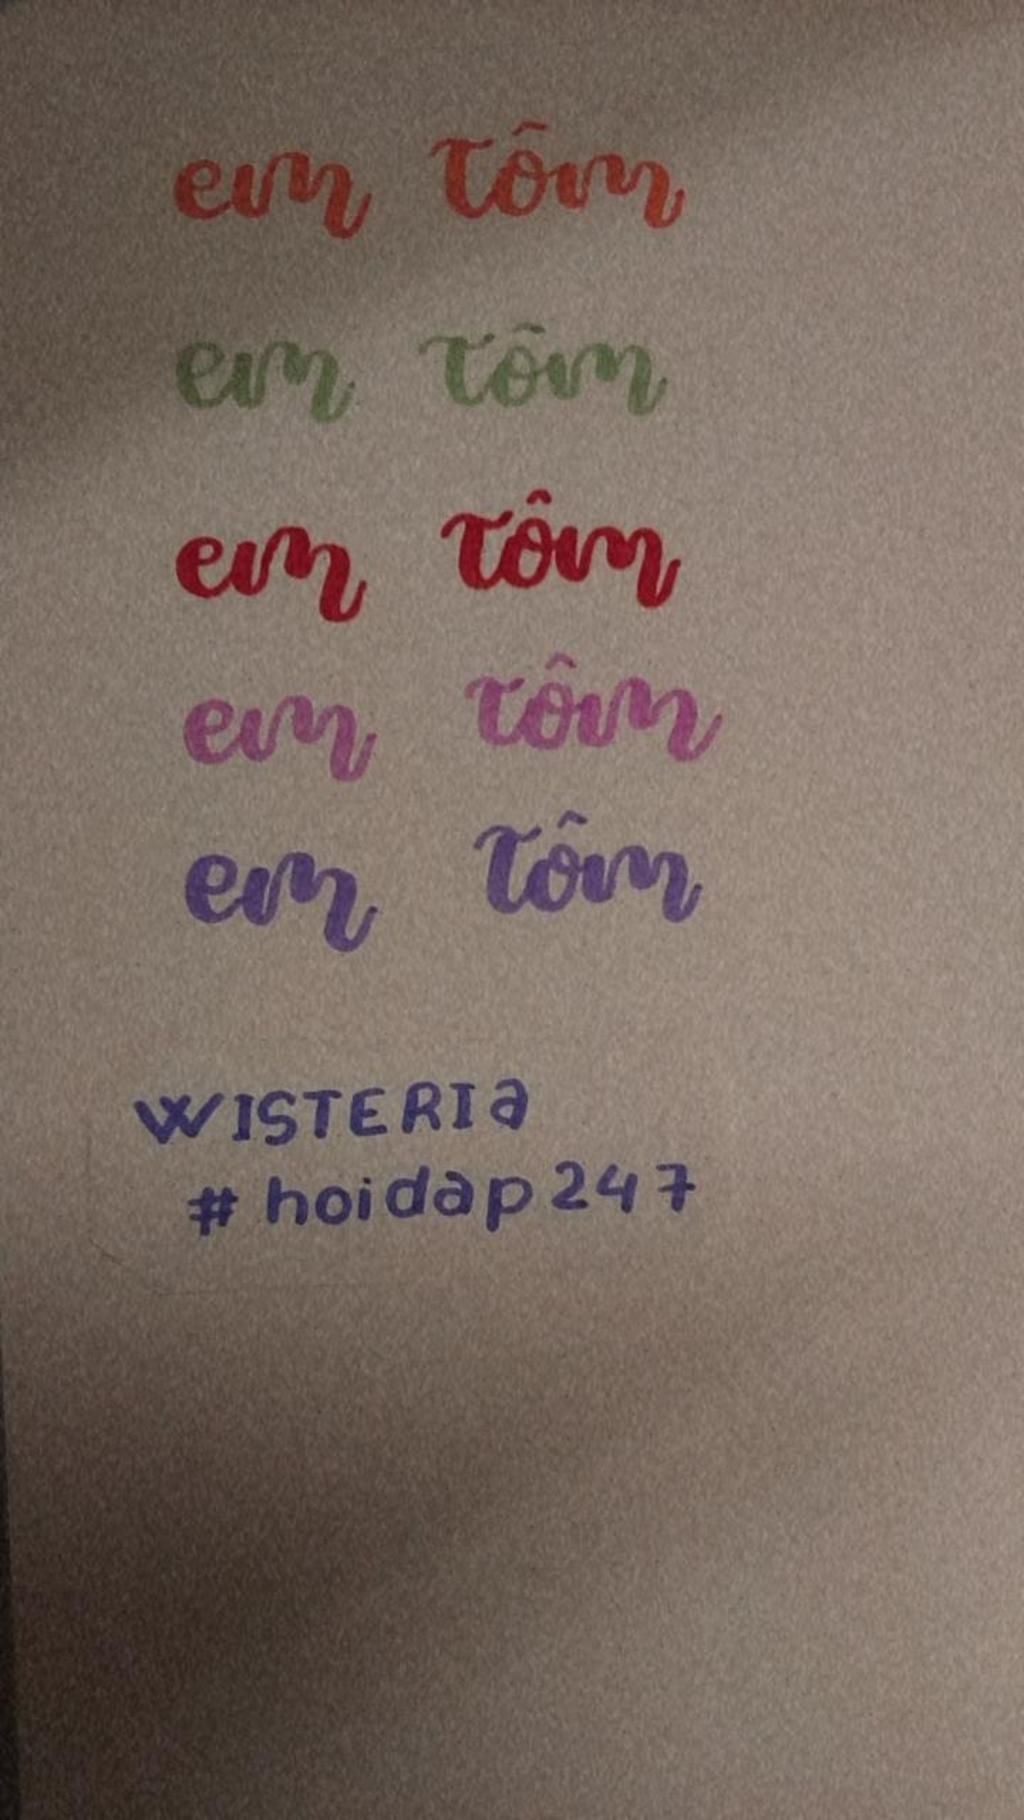 em tôm
em tôm
em tôm
em tôm
em tôm
WISTERIa
# hoidap247